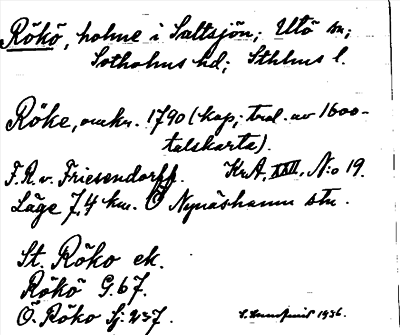 Rökö, holme i Saltsjön; Utö sn;
Sotholms hd; Sthlms l.
Röke, omkr. 1790 (kop. trol. av 1600-
talskarta).
F.R. v. Friesendorff. KrA, XXII, N:o 19.
Läge 7,4 km. Ö Nynäshamn stn.
St. Rökö ek.
Rökö G.67.
Ö. Rökö Sj: 237.
1936.